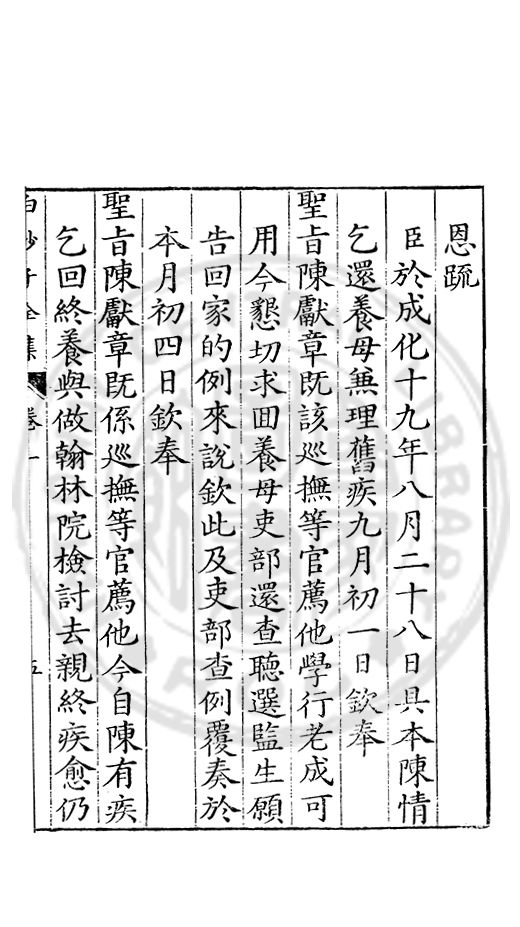 恩疏
臣於成化十九年八月二十八日具本陳情
乞還養母兼理舊疾九月初一日欽奉
聖旨陳獻章既該巡撫等官薦他學行老成可
用今懇切求回養母吏部還查聽選監生願
告回家的例來說欽此及吏部查例覆奏於
本月初四日欽奉
聖旨陳獻章既係巡撫等官薦他今自陳有疾
乞回終養與做翰林院檢討去親終疾愈仍
白沙子全集 卷一 五